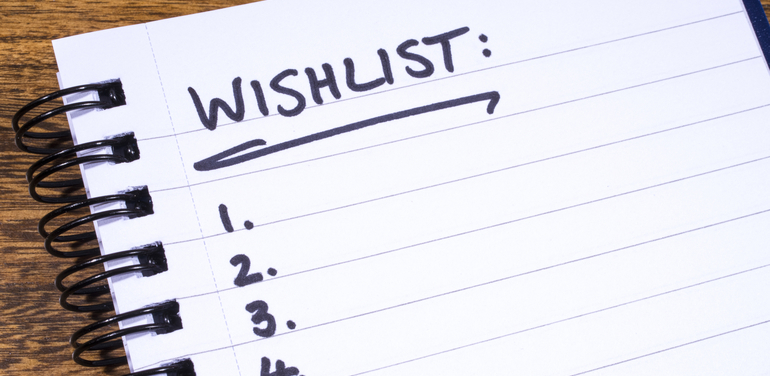 WISHLIST:
1.
2.
3.
4.